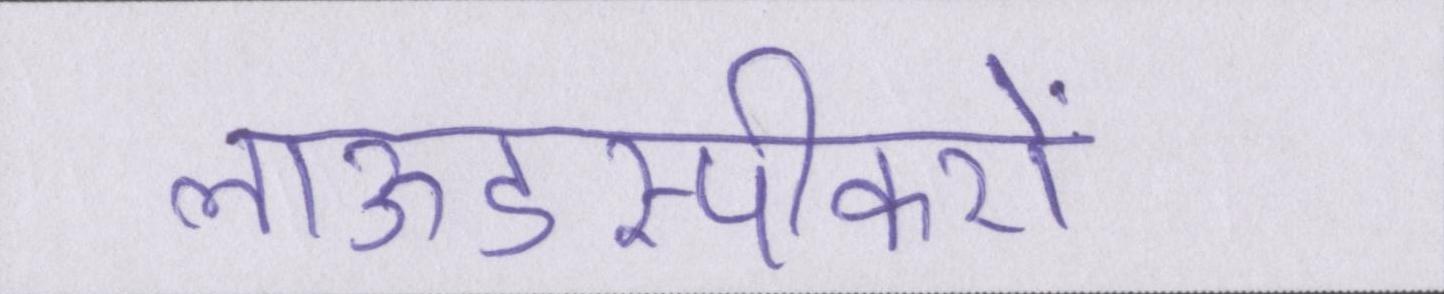 लाऊडस्पीकरों